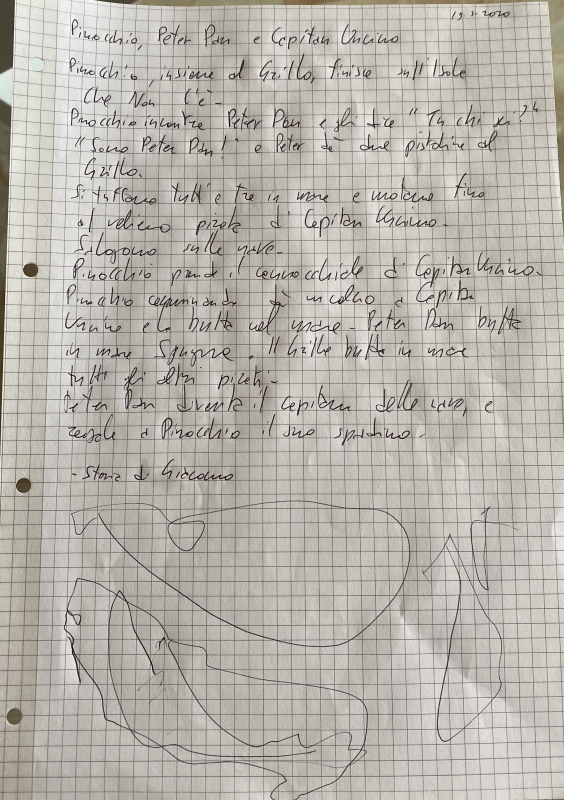 19.3.2020
Pinocchio, Peter Pan e Capitan Uncino
Pinocchio, insieme al Grillo, finisce sull'Isola
Che Non C'è.
Pinocchio incontra Peter Pan e gli fa "Tu chi sei?"
"Sono Peter Pan!" e Peter dà due pistoline al
Grillo.
Si tuffano tutti e tre in mare e nuotano fino
al veliero pirata di Capitan Uncino.
Salgono sulla nave.
Pinocchio prende il cannocchiale di Capitan Uncino.
Pinocchio dà un calcio a Capitan
Uncino e lo butta nel mare. Peter Pan butta
in mare Spugna. Il Grillo butta in mare
tutti gli altri pirati.
Peter Pan diventa il capitano della nave, e
regala a Pinocchio il suo spadino.
- Storia di Giacomo